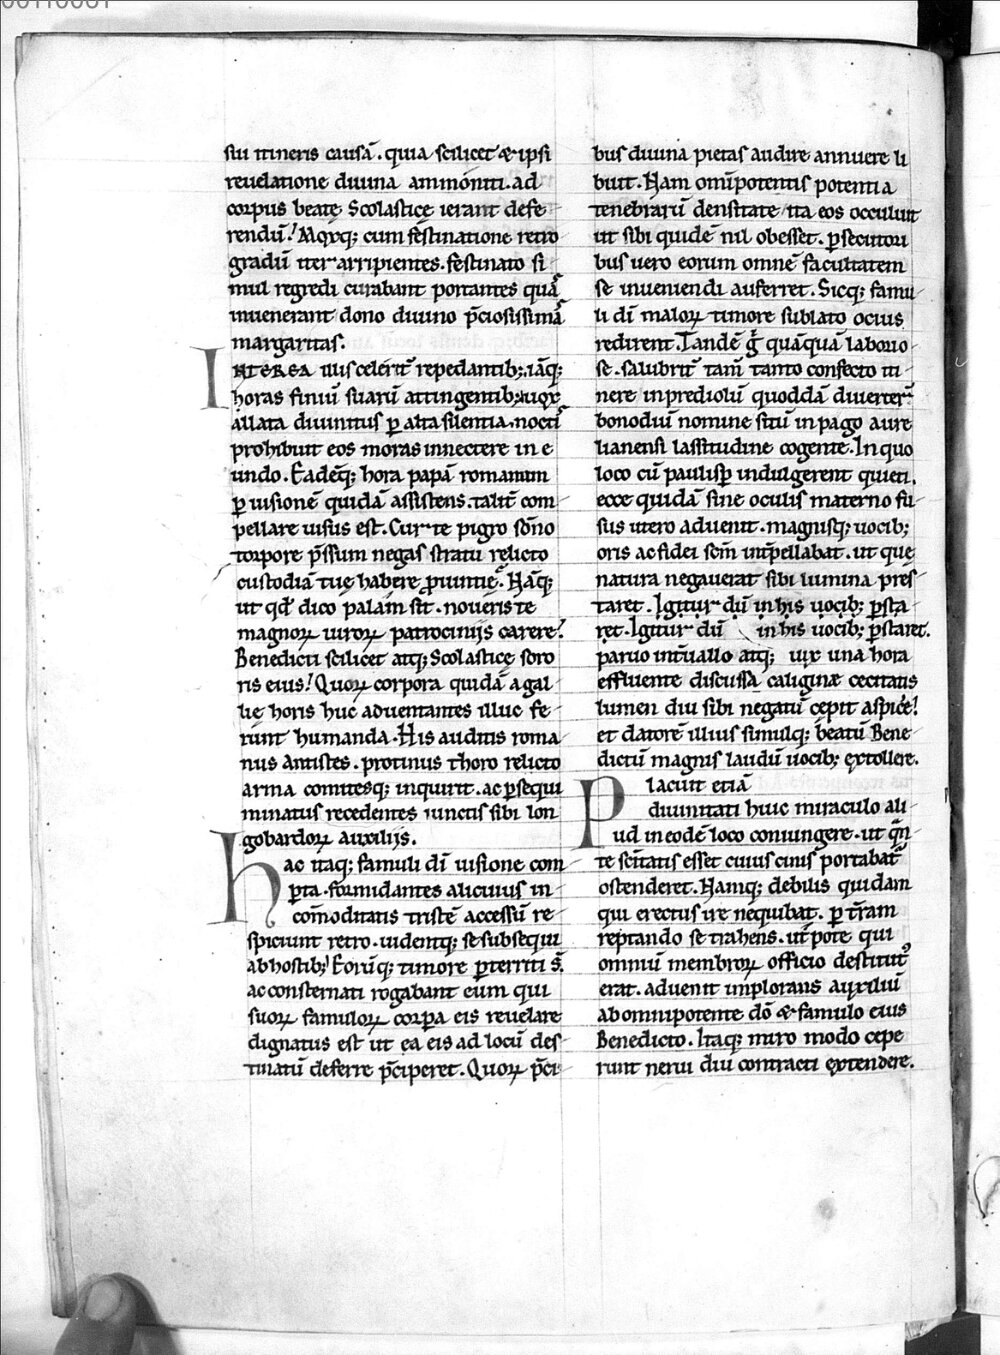 sui itineris causā . quia scilicet & ipsi
reuelatione diuina ammoniti . ad
corpus beatę Scolasticę ierant defe
rendū! Moxq; cum festinatione retro
gradū iter arripientes . festinato si
mul regredi curabant portantes quā
inuenerant dono diuino p̄ciosissimā
margaritas.
INTEREA illis celerit̄ repedantib; . iāq;
horas finiū suarū attingentib; . luqx
allata diuinitus ꝑ alta silentia . noctis
prohibuit eos moras innectere in e
undo . Eadēq; hora papā romanum
ꝑ uisionē quidā assistens . talit̄ com
pellare uisus est . Cur te pigro sōno
torpore p̄ssum negas stratu relicto
custodiā tuę habere ꝓuintię . Nāq;
ut qđ dico palam sit . noueris te
magnoꝝ uiroꝝ patrocinijs carere!
Benedicti scilicet atq; Scolasticę soro
ris eius! Quoꝝ corpora quidā a gal
lię horis huc aduentantes illuc fe
runt humanda . His auditis roma
nus Antistes . protinus thoro relicto
arma comitesq; inquirit . ac ꝑsequi
minatus recedentes iunctis sibi lon
gobardoꝝ auxilijs.
hac itaq; famuli dī uisione com
ꝑta . formidantes alicuius in
cōmoditatis tristē accessū re
spiciunt retro . uidentq; se subsequi
ab hostib;! Eorūq; timore ꝑterriti s̄.
ac consternati rogabant eum qui
suoꝝ famuloꝝ corꝑa eis reuelare
dignatus est ut ea eis ad locū des
tinatū deferre p̄ciperet . Quoꝝ p̄ci
bus diuina pietas audire annuere li
buit . Nam omīpotentis potentia
tenebrarū densitate ita eos occuluit
ut sibi quidē nil obesset . ꝑsecutori
bus uero eorum omnē facultatem
se inueniendi auferret . Sicq; famu
li dī maloꝝ timore sublato ocius
redirent . Tandē g̊ quāquā laborio
se . salubrit̄ tam̄ tanto confecto iti
nere in prediolū quoddā diuerter̄
bonodiū nomine sitū in pago aure
lianensi lassitudine cogente . In quo
loco cū paulisꝑ indulgerent quieti.
ecce quidā sine oculis materno fu
sus utero aduenit . magnisq; uocib;
oris ac fidei scm̄ int̄pellabat . ut quę
natura negauerat sibi lumina pres
taret . Igitur dū in his uocib; ꝑsta
ret . Igitur dū in his uocib; ꝑstaret.
paruo int̄uallo atq; uix una hora
effluente discussā caliginæ cecitatis
lumen diu sibi negatū cepit aspicē!
et datorē illius simulq; beatū Bene
dictū magnis laudū uocib; extollere.
Placuit etiā
diuinitati huic miraculo ali
ud in eodē loco coniungere . ut q̄n
te sc̄itatis esset cuius cinis portabat̄
ostenderet . Namq; debilis quidam
qui erectus ire nequibat . ꝑ t̄ram
reptando se trahens . ut̄pote qui
omniū membroꝝ officio destitut᷒
erat . aduenit implorans auxiliū
ab omnipotente dō & famulo eius
Benedicto . Itaq; miro modo cepe
runt nerui diu contracti extendere.